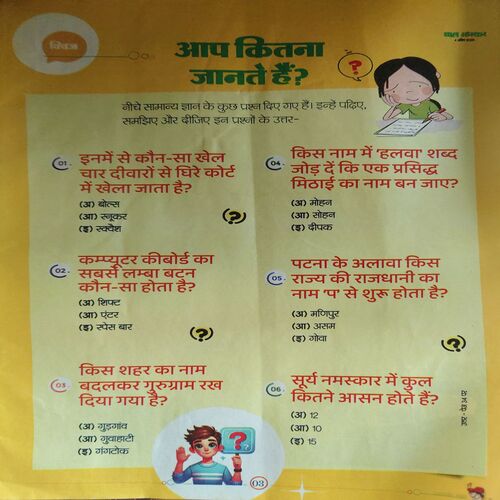 क्विज
बाल भास्कर
आप कितना
जानते हैं?
?
नीचे सामान्य ज्ञान के कुछ प्रश्न दिए गए हैं। इन्हें पढ़िए,
समझिए और दीजिए इन प्रश्नों के उत्तर-
01. इनमें से कौन-सा खेल
चार दीवारों से घिरे कोर्ट
में खेला जाता है?
(अ) बोल्स
(आ) स्नूकर
(इ) स्क्वैश
?
02. कम्प्यूटर कीबोर्ड का
सबसे लम्बा बटन
कौन-सा होता है?
(अ) शिफ्ट
(आ) एंटर
(इ) स्पेस बार
?
03. किस शहर का नाम
बदलकर गुरुग्राम रख
दिया गया है?
(अ) गुड़गांव
(आ) गुवाहाटी
(इ) गंगटोक
?
04. किस नाम में 'हलवा' शब्द
जोड़ दें कि एक प्रसिद्ध
मिठाई का नाम बन जाए?
(अ) मोहन
(आ) सोहन
(इ) दीपक
05. पटना के अलावा किस
राज्य की राजधानी का
नाम 'प' से शुरू होता है?
(अ) मणिपुर
(आ) असम
(इ) गोवा
?
06. सूर्य नमस्कार में कुल
कितने आसन होते हैं?
(अ) 12
(आ) 10
(इ) 15
03